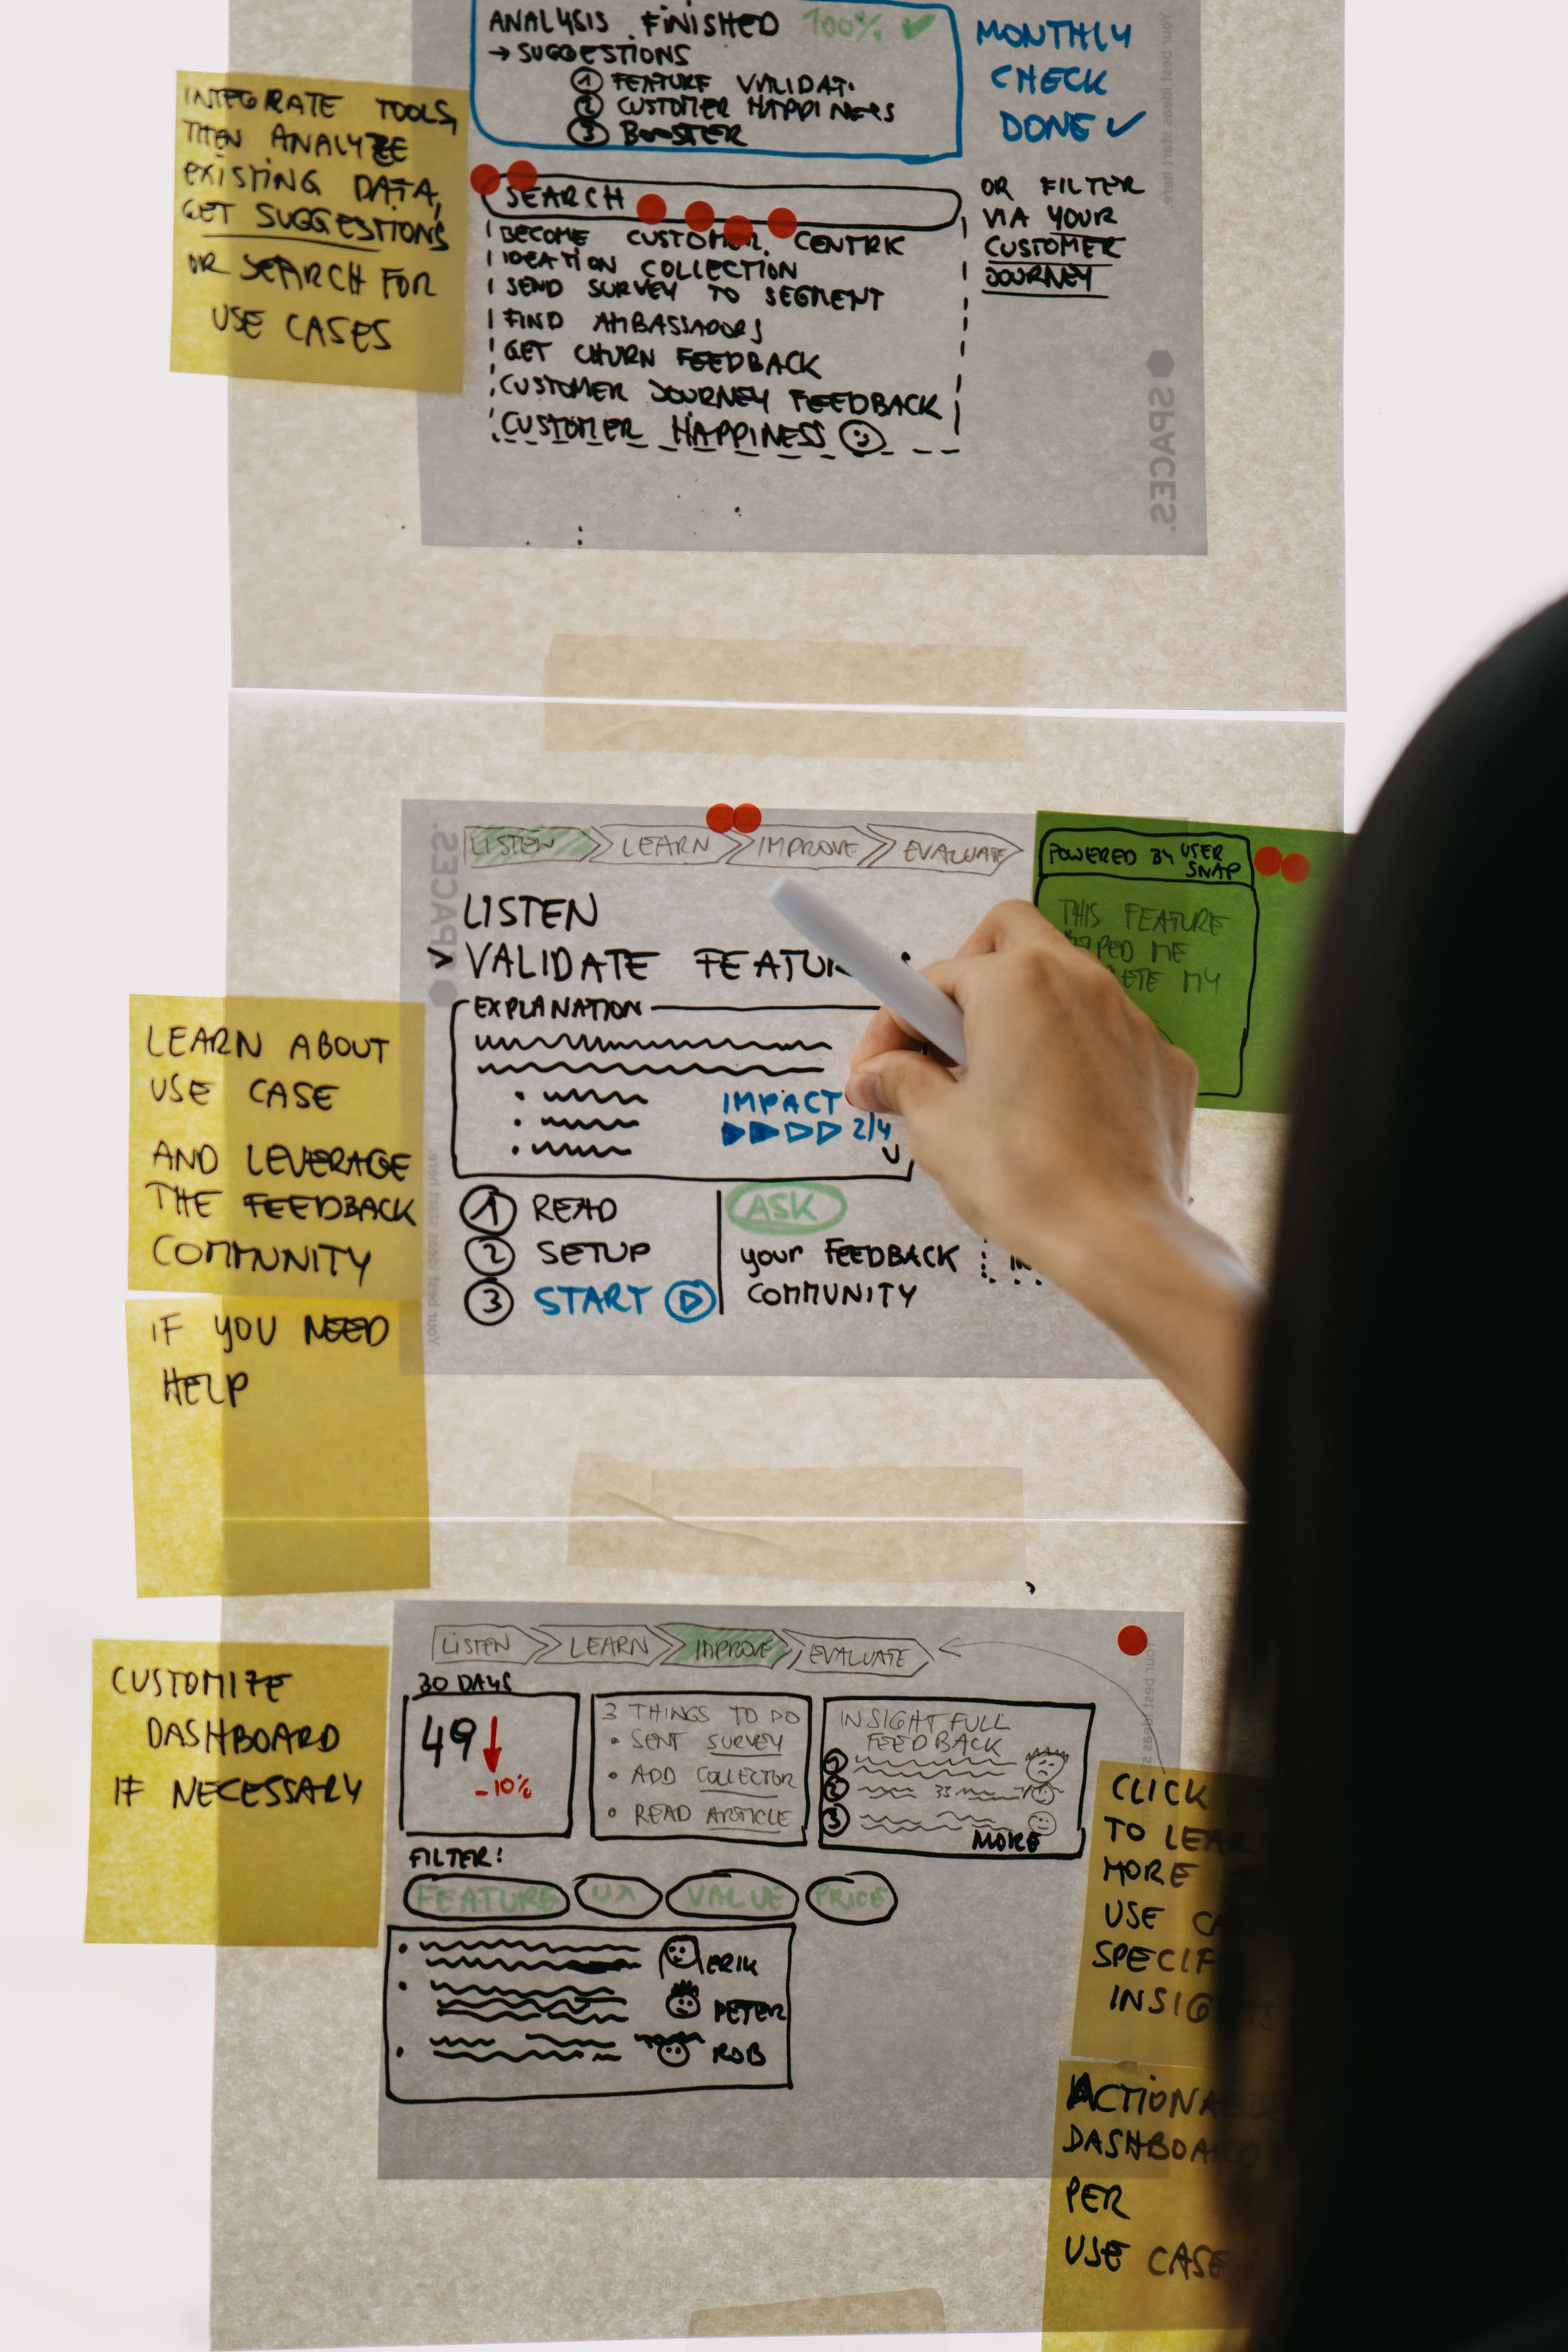 ANALYSIS FINISHED 100% ✓
→ SUGGESTIONS
① FEATURE VALIDAT.
② CUSTOMER HAPPINESS
③ BOOSTER
MONTHLY
CHECK
DONE ✓
INTEGRATE TOOLS,
THEN ANALYZE
EXISTING DATA,
GET SUGGESTIONS
OR SEARCH FOR
USE CASES
SEARCH
BECOME CUSTOMER CENTRIC
IDEATION COLLECTION
SEND SURVEY TO SEGMENT
FIND AMBASSADORS
GET CHURN FEEDBACK
CUSTOMER JOURNEY FEEDBACK
CUSTOMER HAPPINESS
OR FILTER
VIA YOUR
CUSTOMER
JOURNEY
Your best ideas start here.
SPACES.
LISTEN LEARN IMPROVE EVALUATE
SPACES.
LISTEN
> VALIDATE
EXPLANATION
IMPACT
2/4
① READ
② SETUP
③ START
ASK
your FEEDBACK
COMMUNITY
Your best ideas start here.
POWERED BY USER
SNAP
THIS FEATURE
ME
MY
LEARN ABOUT
USE CASE
AND LEVERAGE
THE FEEDBACK
COMMUNITY
IF YOU NEED
HELP
LISTEN LEARN IMPROVE EVALUATE
30 DAYS
49
-10%
3 THINGS TO DO
• SENT SURVEY
• ADD COLLECTOR
• READ ARTICLE
INSIGHTFULL
FEEDBACK
①
②
③
MORE
Your best
FILTER:
FEATURE UX VALUE PRICE
ERIK
PETER
ROB
CUSTOMIZE
DASHBOARD
IF NECESSARY
CLICK
TO
MORE
USE
INSIG
PER
USE CASE